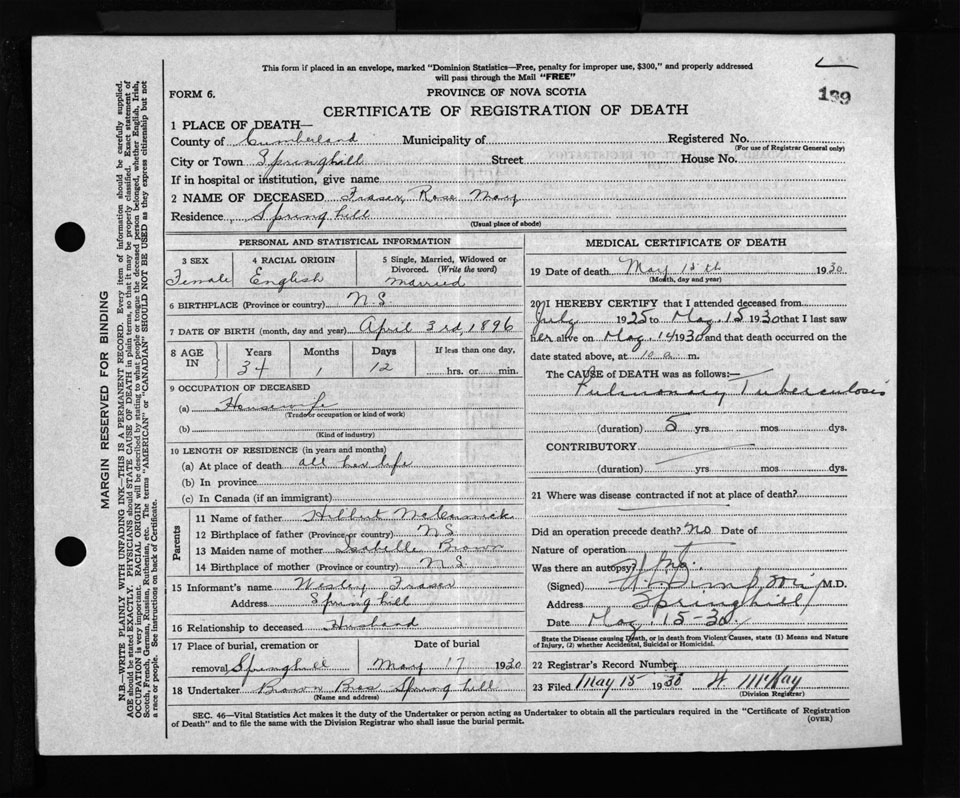 This form if placed in an envelope, marked "Dominion Statistics—Free, penalty for improper use, $300," and properly addressed
will pass through the Mail "FREE"
199
FORM 6.
PROVINCE OF NOVA SCOTIA
CERTIFICATE OF REGISTRATION OF DEATH
1 PLACE OF DEATH—
County of Cumberland Municipality of Registered No.
(For use of Registrar General only)
City or Town Springhill Street House No.
If in hospital or institution, give name
2 NAME OF DECEASED Fraser, Rose Mary
Residence Springhill
(Usual place of abode)
PERSONAL AND STATISTICAL INFORMATION
3 SEX 4 RACIAL ORIGIN 5 Single, Married, Widowed or
Divorced. (Write the word)
Female English Married
6 BIRTHPLACE (Province or country) N S
7 DATE OF BIRTH (month, day and year) April 3rd, 1896
8 AGE IN Years Months Days If less than one day,
34 1 12 hrs. or min.
9 OCCUPATION OF DECEASED
(a) Housewife
(Trade or occupation or kind of work)
(b)
(Kind of industry)
10 LENGTH OF RESIDENCE (in years and months)
(a) At place of death all her life
(b) In province
(c) In Canada (if an immigrant)
Parents
11 Name of father Hilbut
12 Birthplace of father (Province or country) N S
13 Maiden name of mother Isabelle Brown
14 Birthplace of mother (Province or country) N S
15 Informant's name Wesley Fraser
Address Springhill
16 Relationship to deceased Husband
17 Place of burial, cremation or Date of burial
removal Springhill May 17 1930
18 Undertaker Brown Bros Springhill
(Name and address)
MEDICAL CERTIFICATE OF DEATH
19 Date of death May 15th 1930
(Month, day and year)
20 I HEREBY CERTIFY that I attended deceased from
July 1925 to May 15 1930 that I last saw
her alive on May 14 1930 and that death occurred on the
date stated above, at 10 a m.
The CAUSE of DEATH was as follows:—
Pulmonary Tuberculosis
(duration) 5 yrs mos dys.
CONTRIBUTORY
(duration) yrs mos dys.
21 Where was disease contracted if not at place of death?
Did an operation precede death? no Date of
Nature of operation
Was there an autopsy? no.
(Signed) M.D.
Address Springhill
Date May 15-30.
State the Disease causing Death, or in death from Violent Causes, state (1) Means and Nature
of Injury, and (2) whether Accidental, Suicidal or Homicidal.
22 Registrar's Record Number
23 Filed May 15 1930 W McKay
(Division Registrar)
SEC. 46—Vital Statistics Act makes it the duty of the Undertaker or person acting as Undertaker to obtain all the particulars required in the "Certificate of Registration
of Death" and to file the same with the Division Registrar who shall issue the burial permit.
(OVER)
MARGIN RESERVED FOR BINDING
N.B.—WRITE PLAINLY WITH UNFADING INK—THIS IS A PERMANENT RECORD. Every item of information should be carefully supplied.
AGE should be stated EXACTLY. PHYSICIANS should STATE CAUSE OF DEATH in plain terms, so that it may be properly classified. Exact statement of
OCCUPATION is very important. RACIAL ORIGIN will be described by stating to what people or tongue the deceased person belonged, whether English, Irish,
Scotch, French, German, Russian, Ruthenian, etc. The terms "AMERICAN" or "CANADIAN" SHOULD NOT BE USED as they express citizenship but not
a race or people. See instructions on back of Certificate.